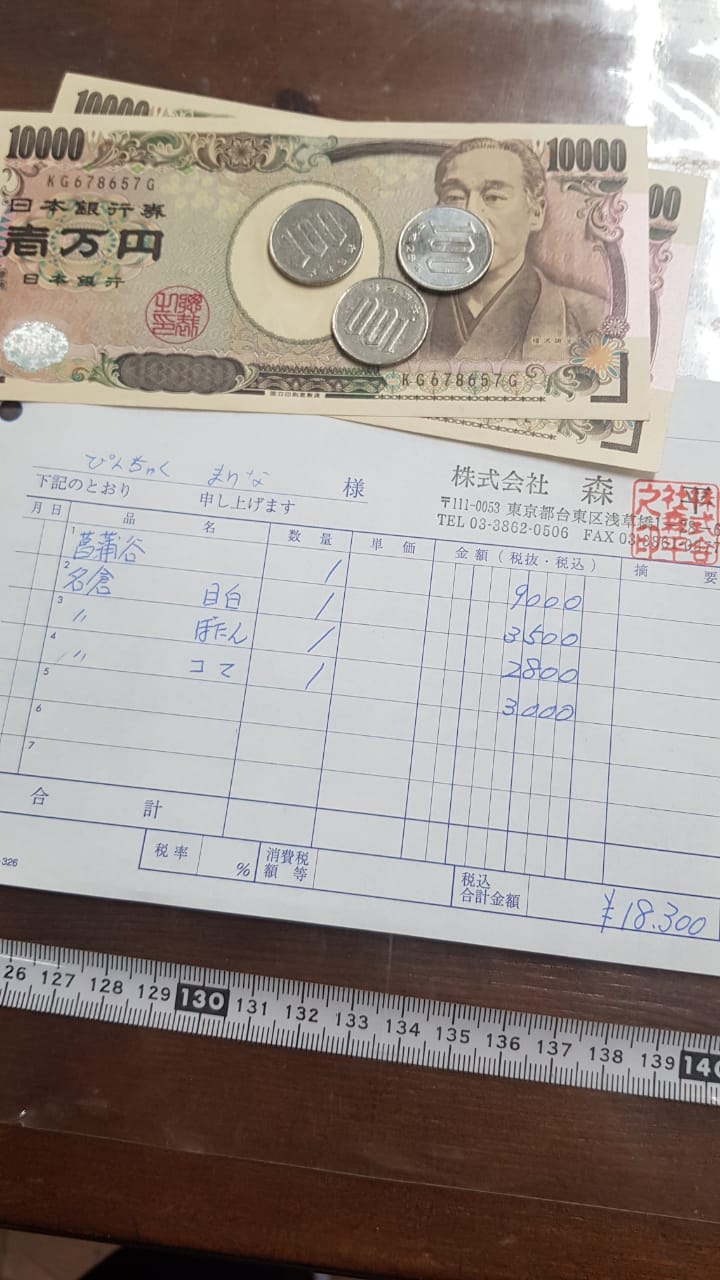 10000
10000 10000
KG678657G
日本銀行券
壱万円
日本銀行
100
100
100
KG678657G
00
ぴんちゃく まりな 様
下記のとおり 申し上げます
株式会社 森平
〒111-0053 東京都台東区浅草橋1-28-6
TEL 03-3862-0506 FAX 03-386
月日 品名 数量 単価 金額(税抜・税込) 摘要
1 菖蒲谷 1 9000
2 名倉 目白 1 3500
3 〃 ぼたん 1 2800
4 〃 コマ 1 3000
5
6
7
合計
税率 % 消費税額等 税込合計金額 ¥18.300
-326
26 127 128 129 130 131 132 133 134 135 136 137 138 139 140